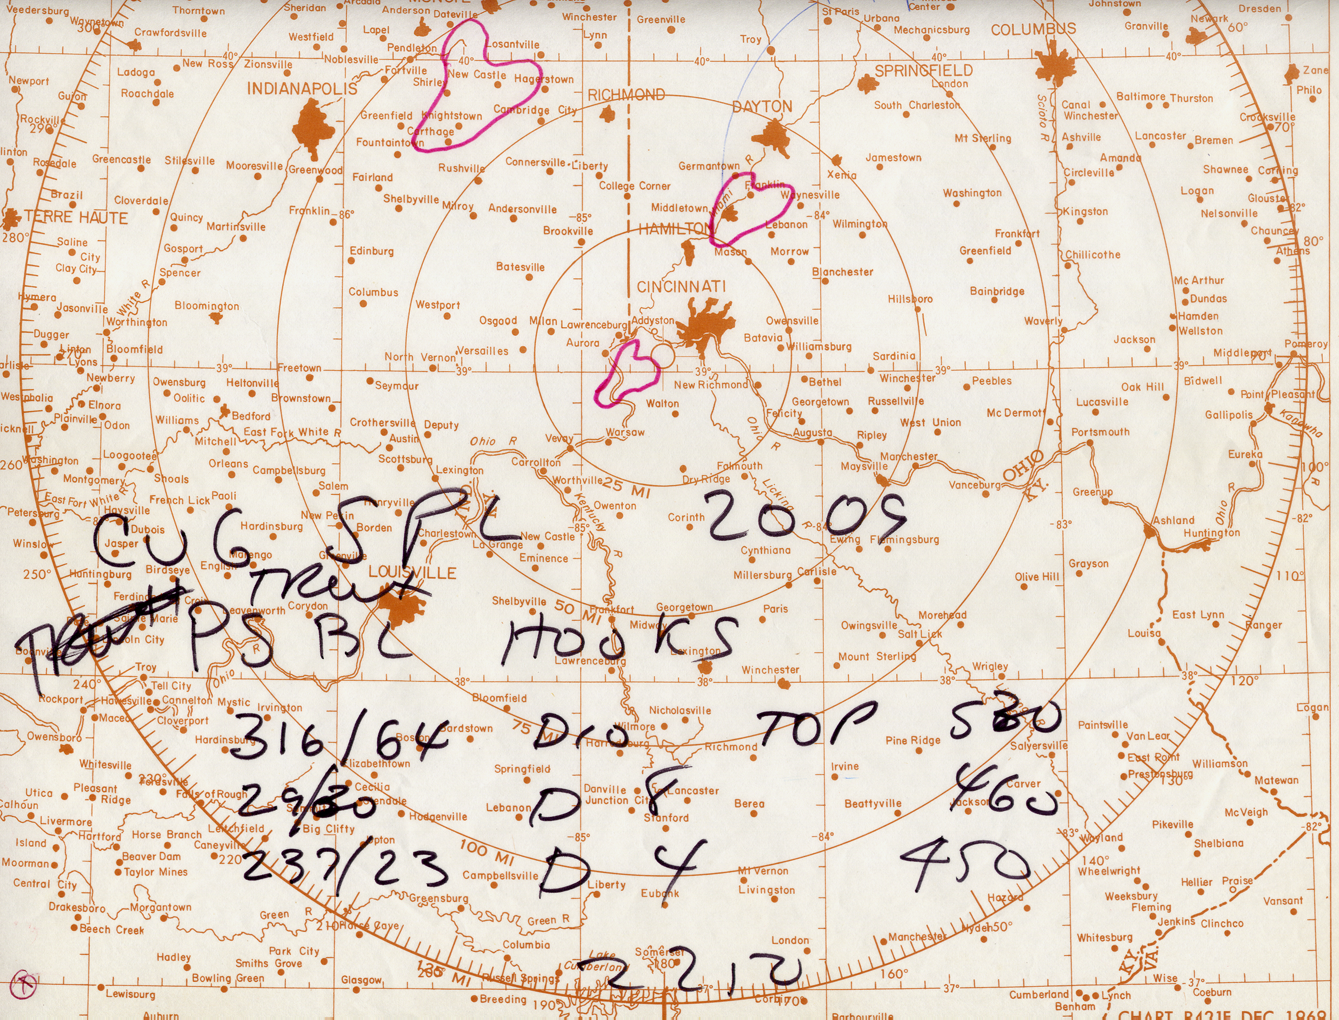 CVG SPL 2009
TRWX
PS BL HOOKS
316/64 D10 TOP 530
29/80 D 8 460
237/23 D 4 450
2210
MUNCIE
INDIANAPOLIS
RICHMOND
DAYTON
SPRINGFIELD
COLUMBUS
TERRE HAUTE
HAMILTON
CINCINNATI
LOUISVILLE
OHIO
KY.
KY.
VA.
25 MI
50 MI
75 MI
100 MI
125 MI
Veedersburg
Waynetown
Crawfordsville
Thorntown
Sheridan
Arcadia
Anderson
Daleville
Winchester
Greenville
St Paris
Urbana
Mechanicsburg
Johnstown
Granville
Newark
Dresden
Westfield
Lapel
Pendleton
Losantville
Lynn
Troy
New Ross
Zionsville
Noblesville
Fortville
Shirley
New Castle
Hagerstown
Cambridge City
London
South Charleston
Ladoga
Roachdale
Newport
Guion
Rockville
Greenfield
Knightstown
Carthage
Fountaintown
Canal Winchester
Baltimore
Thurston
Zane
Philo
Crooksville
Rosedale
Greencastle
Stilesville
Mooresville
Greenwood
Fairland
Rushville
Connersville
Liberty
Germantown
Xenia
Jamestown
Mt Sterling
Ashville
Lancaster
Bremen
Amanda
Circleville
Shawnee
Corning
Logan
Brazil
Cloverdale
Quincy
Martinsville
Franklin
Shelbyville
Milroy
Andersonville
College Corner
Middletown
Franklin
Waynesville
Lebanon
Wilmington
Washington
Kingston
Nelsonville
Glouster
Chauncey
Athens
Saline City
Clay City
Gosport
Spencer
Edinburg
Brookville
Batesville
Mason
Morrow
Blanchester
Greenfield
Frankfort
Chillicothe
Mc Arthur
Dundas
Hamden
Wellston
Jasonville
Worthington
Bloomington
Columbus
Westport
Osgood
Milan
Lawrenceburg
Addyston
Aurora
Owensville
Batavia
Williamsburg
Hillsboro
Bainbridge
Waverly
Jackson
Middleport
Pomeroy
Dugger
Linton
Lyons
Bloomfield
Newberry
North Vernon
Versailles
New Richmond
Bethel
Sardinia
Winchester
Peebles
Oak Hill
Bidwell
Point Pleasant
Gallipolis
Elnora
Plainville
Odon
Owensburg
Oolitic
Heltonville
Freetown
Brownstown
Seymour
Walton
Georgetown
Russellville
Felicity
West Union
Mc Dermott
Lucasville
Portsmouth
Williams
Bedford
Mitchell
East Fork White R
Crothersville
Austin
Deputy
Vevay
Warsaw
Augusta
Ripley
Manchester
Maysville
Vanceburg
Greenup
Eureka
Washington
Loogootee
Montgomery
Shoals
Orleans
Campbellsburg
Salem
Scottsburg
Lexington
Carrollton
Worthville
Dry Ridge
Falmouth
Petersburg
Haysville
Dubois
Jasper
French Lick
Paoli
Hardinsburg
New Pekin
Borden
Charlestown
La Grange
New Castle
Eminence
Owenton
Corinth
Cynthiana
Ewing
Flemingsburg
Ashland
Huntington
Winslow
Huntingburg
Birdseye
English
Marengo
Greenville
Millersburg
Carlisle
Olive Hill
Grayson
Leavenworth
Corydon
Shelbyville
Frankfort
Georgetown
Midway
Paris
Owingsville
Salt Lick
Morehead
East Lynn
Ranger
Louisa
Lincoln City
Troy
Tell City
Cannelton
Mystic
Hawesville
Cloverport
Irvington
Hardinsburg
Lawrenceburg
Lexington
Winchester
Mount Sterling
Wrigley
Logan
Rockport
Maceo
Owensboro
Whitesville
Bloomfield
Bardstown
Nicholasville
Wilmore
Richmond
Irvine
Pine Ridge
Salyersville
Paintsville
Van Lear
East Point
Prestonsburg
Williamson
Matewan
Elizabethtown
Cecilia
Hodgenville
Springfield
Lebanon
Danville
Junction City
Lancaster
Stanford
Berea
Beattyville
Jackson
Carver
Utica
Calhoun
Pleasant Ridge
Fordsville
Falls of Rough
Livermore
Island
Hartford
Horse Branch
Leitchfield
Caneyville
Big Clifty
Upton
Moorman
Beaver Dam
Taylor Mines
Central City
Drakesboro
Morgantown
Beech Creek
Campbellsville
Greensburg
Liberty
Eubank
Mt Vernon
Livingston
Wayland
Wheelwright
Weeksbury
Fleming
Jenkins
Pikeville
McVeigh
Shelbiana
Hellier
Praise
Clinchco
Vansant
Hadley
Park City
Smiths Grove
Bowling Green
Horse Cave
Glasgow
Columbia
Russell Springs
Breeding
Somerset
Lake Cumberland
London
Corbin
Manchester
Hyden
Hazard
Whitesburg
Cumberland
Lynch
Benham
Wise
Coeburn
Lewisburg
Auburn
Barbourville
CHART R421E DEC 1968